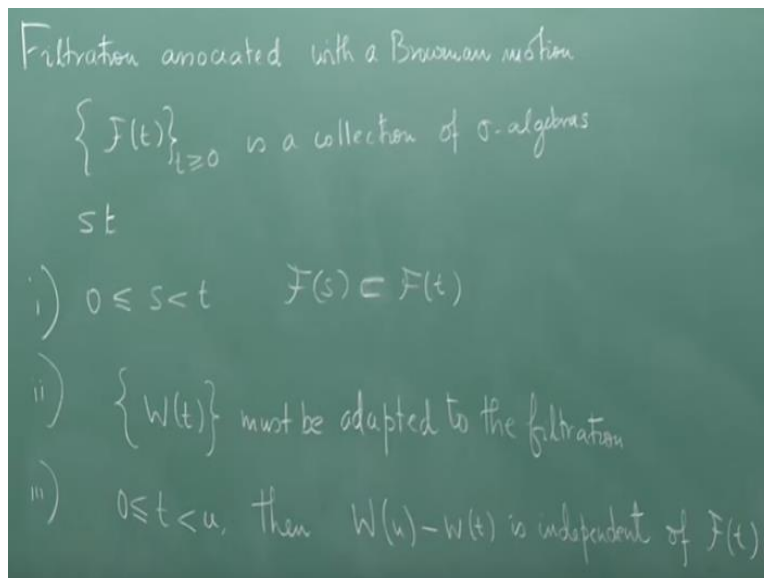 Filtration associated with a Brownian motion
{F(t)}_{t≥0} is a collection of σ-algebras
st
i) 0 ≤ s < t F(s) ⊂ F(t)
ii) {W(t)} must be adapted to the filtration
iii) 0 ≤ t < u, then W(u) - W(t) is independent of F(t)